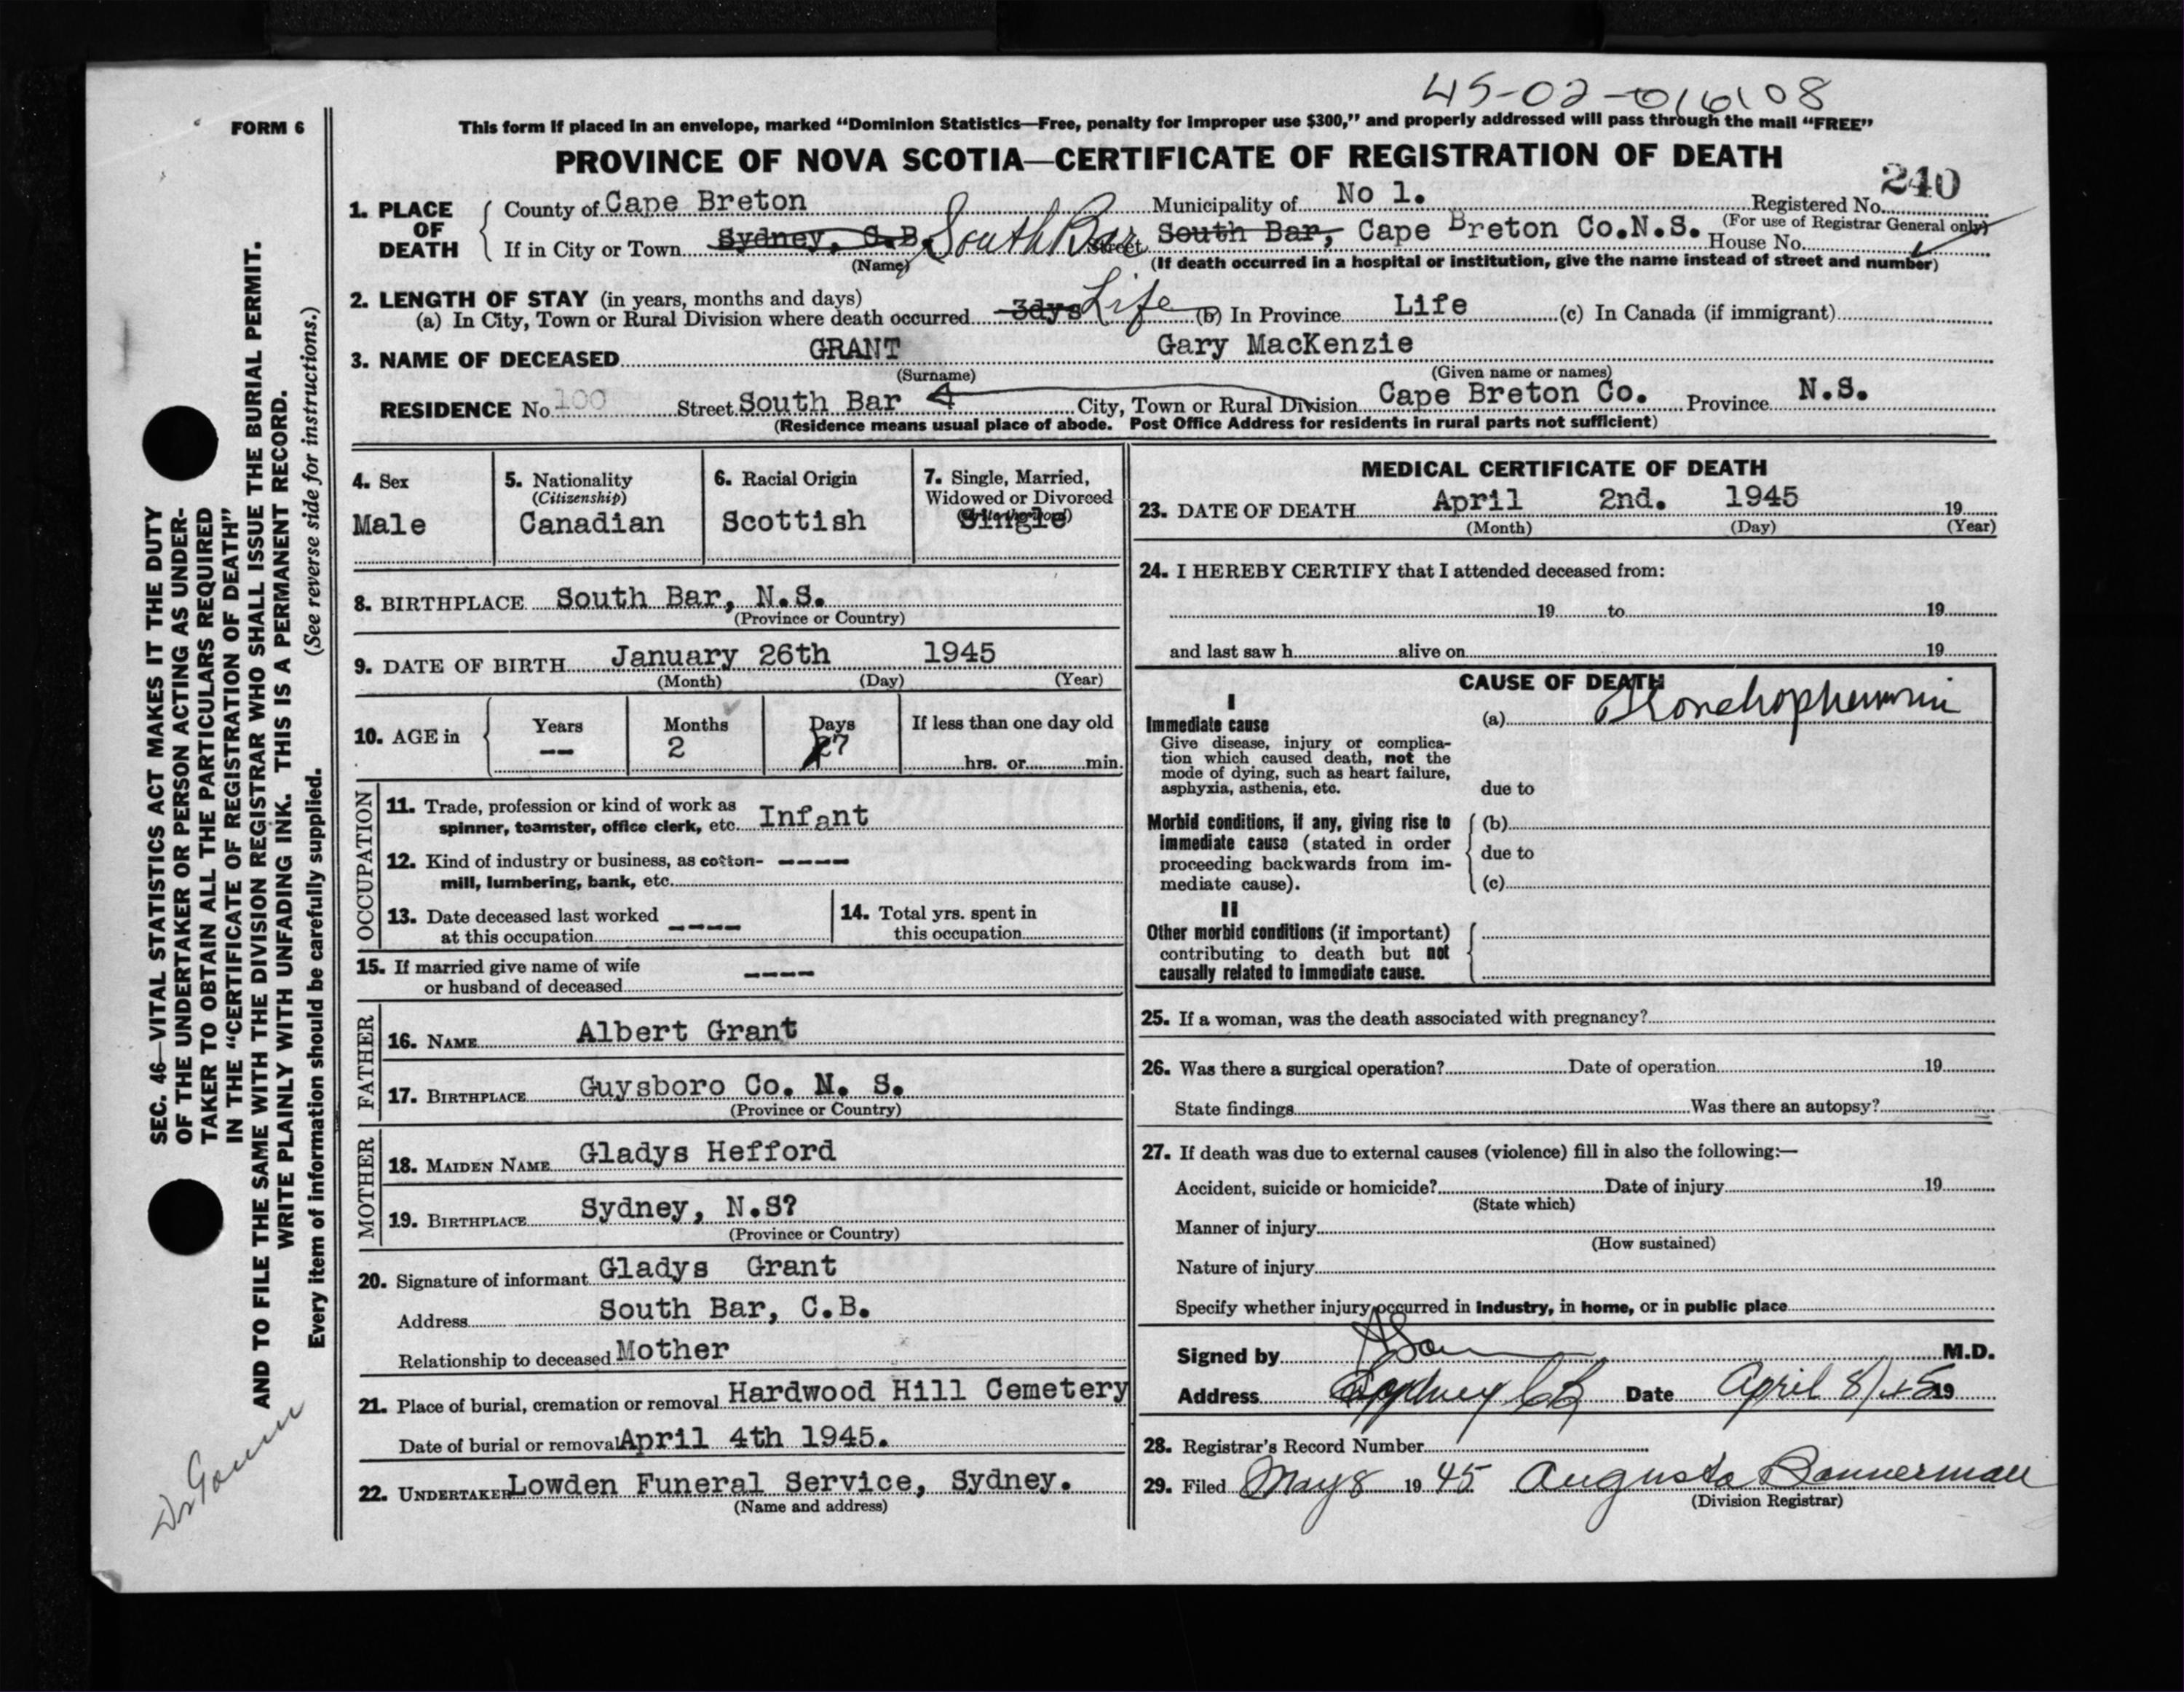 45-02-016108
FORM 6
This form if placed in an envelope, marked “Dominion Statistics—Free, penalty for improper use $300,” and properly addressed will pass through the mail “FREE”
PROVINCE OF NOVA SCOTIA—CERTIFICATE OF REGISTRATION OF DEATH
240
1. PLACE OF DEATH
County of Cape Breton Municipality of No 1. Registered No.
(For use of Registrar General only)
If in City or Town Sydney, C.B. South Bar Street South Bar, Cape Breton Co.N.S. House No.
(Name)
(If death occurred in a hospital or institution, give the name instead of street and number)
2. LENGTH OF STAY (in years, months and days)
(a) In City, Town or Rural Division where death occurred 3dys Life (b) In Province Life (c) In Canada (if immigrant)
3. NAME OF DECEASED GRANT Gary MacKenzie
(Surname) (Given name or names)
RESIDENCE No. 100 Street South Bar City, Town or Rural Division Cape Breton Co. Province N.S.
(Residence means usual place of abode. Post Office Address for residents in rural parts not sufficient)
4. Sex
Male
5. Nationality
(Citizenship)
Canadian
6. Racial Origin
Scottish
7. Single, Married,
Widowed or Divorced
Single
8. BIRTHPLACE South Bar, N.S.
(Province or Country)
9. DATE OF BIRTH January 26th 1945
(Month) (Day) (Year)
10. AGE in
Years Months Days If less than one day old
-- 2 7
hrs. or min.
OCCUPATION
11. Trade, profession or kind of work as
spinner, teamster, office clerk, etc. Infant
12. Kind of industry or business, as cotton- ----
mill, lumbering, bank, etc.
13. Date deceased last worked ----
at this occupation
14. Total yrs. spent in
this occupation
15. If married give name of wife ----
or husband of deceased
FATHER
16. NAME Albert Grant
17. BIRTHPLACE Guysboro Co. N. S.
(Province or Country)
MOTHER
18. MAIDEN NAME Gladys Hefford
19. BIRTHPLACE Sydney, N.S?
(Province or Country)
20. Signature of informant Gladys Grant
Address South Bar, C.B.
Relationship to deceased Mother
21. Place of burial, cremation or removal Hardwood Hill Cemetery
Date of burial or removal April 4th 1945.
22. UNDERTAKER Lowden Funeral Service, Sydney.
(Name and address)
MEDICAL CERTIFICATE OF DEATH
23. DATE OF DEATH April 2nd. 1945 19
(Month) (Day) (Year)
24. I HEREBY CERTIFY that I attended deceased from:
19 to 19
and last saw h alive on 19
CAUSE OF DEATH
I
Immediate cause
Give disease, injury or complica-
tion which caused death, not the
mode of dying, such as heart failure,
asphyxia, asthenia, etc.
(a)
due to
Morbid conditions, if any, giving rise to
immediate cause (stated in order
proceeding backwards from im-
mediate cause).
(b)
due to
(c)
II
Other morbid conditions (if important)
contributing to death but not
causally related to immediate cause.
25. If a woman, was the death associated with pregnancy?
26. Was there a surgical operation? Date of operation 19
State findings Was there an autopsy?
27. If death was due to external causes (violence) fill in also the following:—
Accident, suicide or homicide? Date of injury 19
(State which)
Manner of injury
(How sustained)
Nature of injury
Specify whether injury occurred in industry, in home, or in public place
Signed by M.D.
Address Sydney CB Date April 8/45 19
28. Registrar's Record Number
29. Filed May 8 19 45 Augusta Bannerman
(Division Registrar)
SEC. 46—VITAL STATISTICS ACT MAKES IT THE DUTY
OF THE UNDERTAKER OR PERSON ACTING AS UNDER-
TAKER TO OBTAIN ALL THE PARTICULARS REQUIRED
IN THE “CERTIFICATE OF REGISTRATION OF DEATH”
AND TO FILE THE SAME WITH THE DIVISION REGISTRAR WHO SHALL ISSUE THE BURIAL PERMIT.
WRITE PLAINLY WITH UNFADING INK. THIS IS A PERMANENT RECORD.
Every item of information should be carefully supplied. (See reverse side for instructions.)
Dr